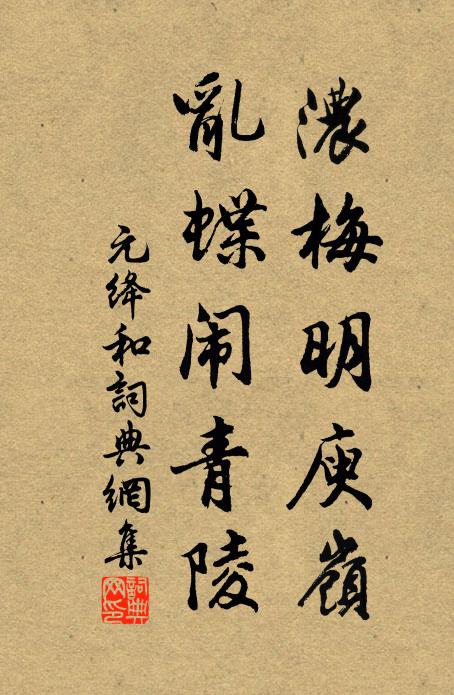 濃梅明庾嶺
亂蝶闹青陵
元绛和詞典網集
詞典网印